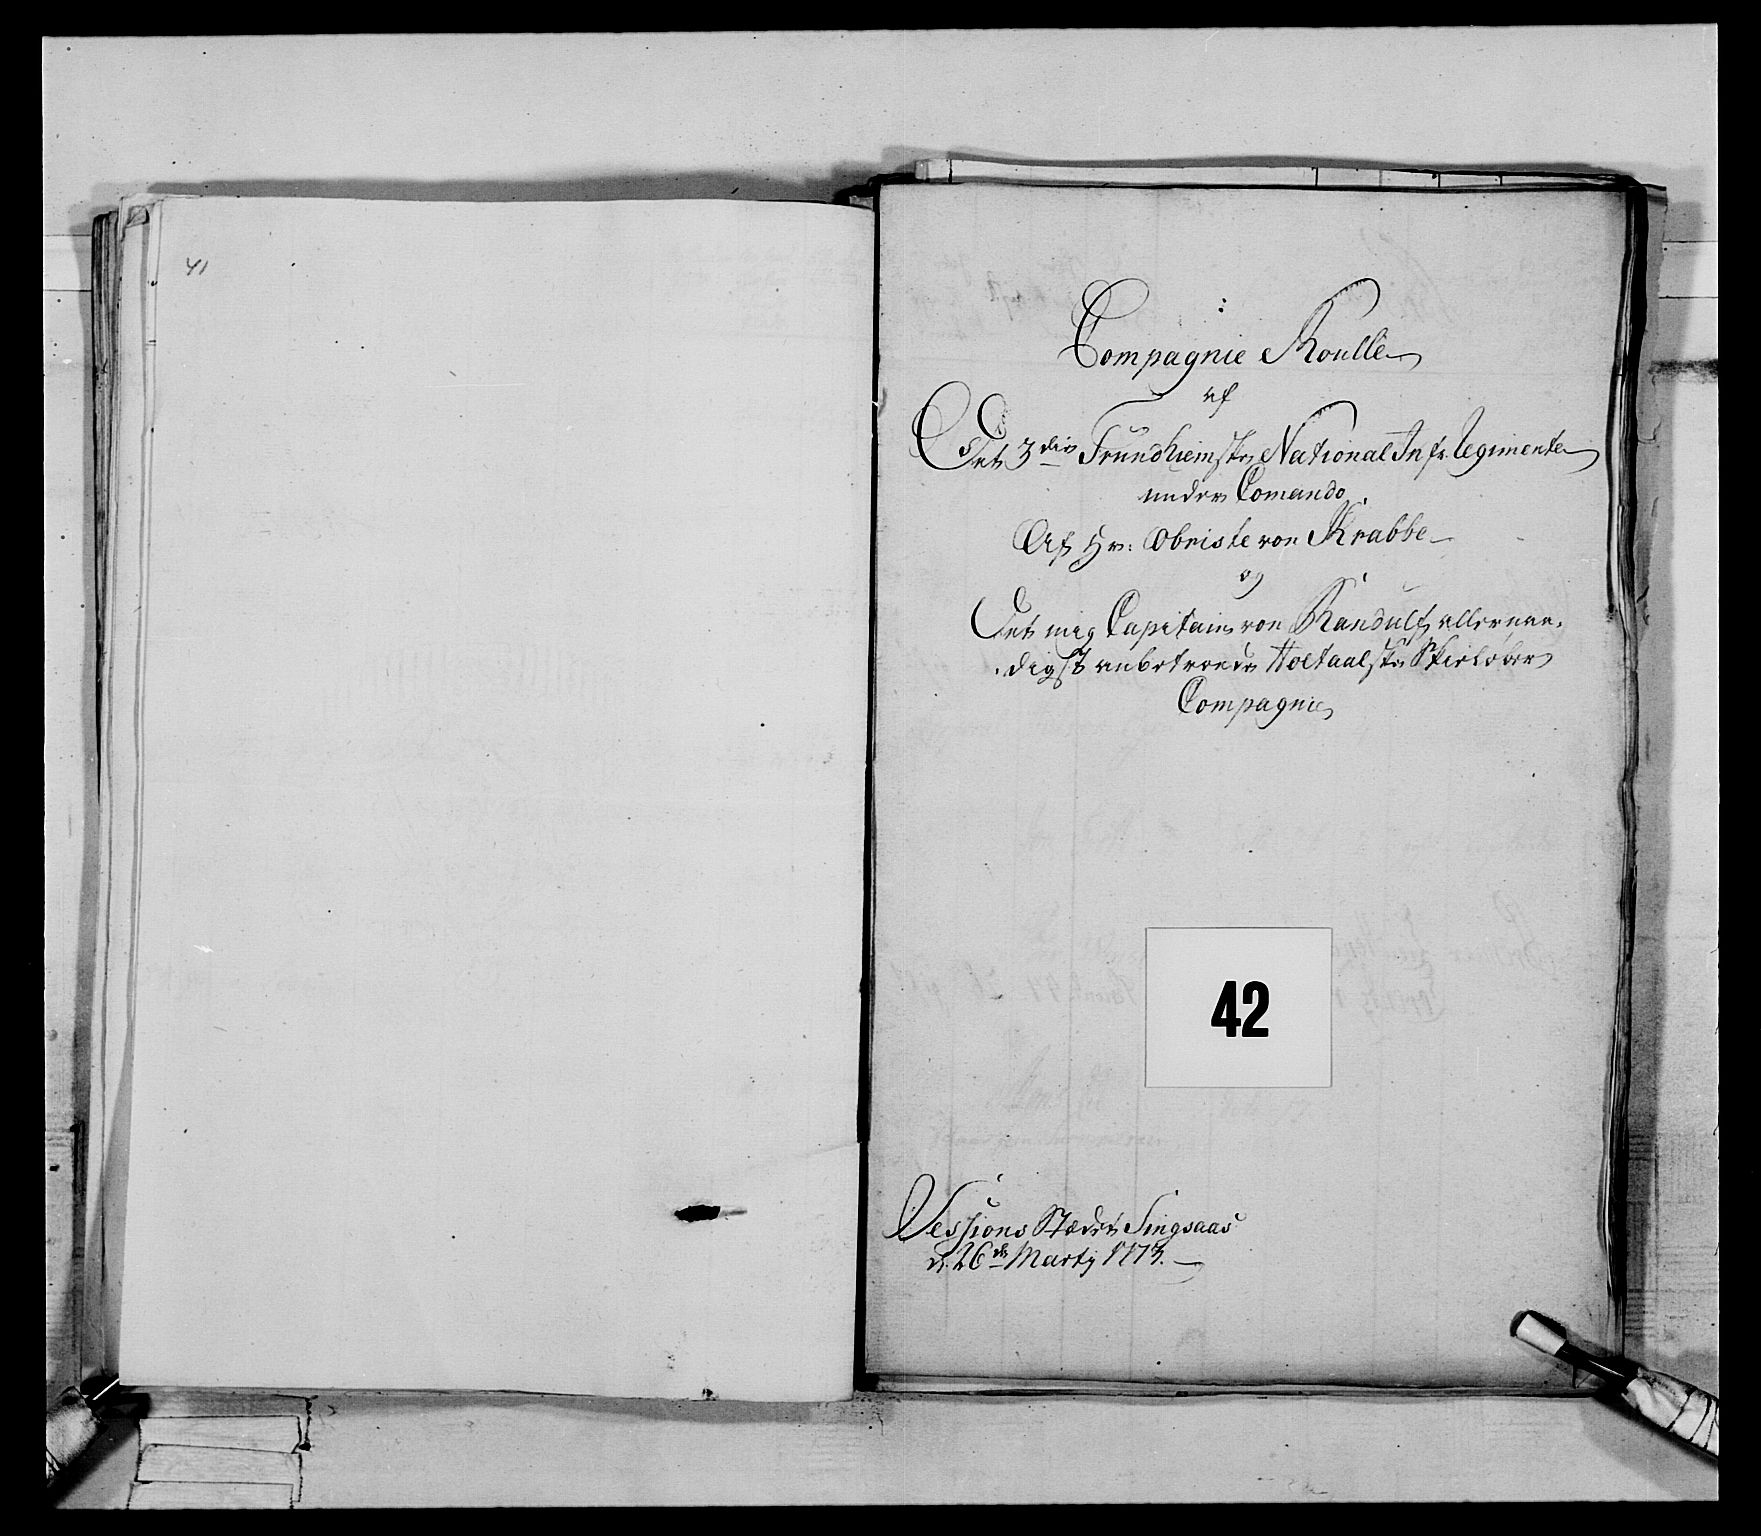 41
Compagnie Roulle
af
Det 3die Trundhiemske National Inf: Regimente
under Comando
Af Hr: Obriste von Krabbe
og
Det mig Capitain von Randulf allernaa-
digst anbetroede Holtaalske Skieløber
Compagnie
42
Sessions Stædet Singsaas
d. 26de Martij 1773.